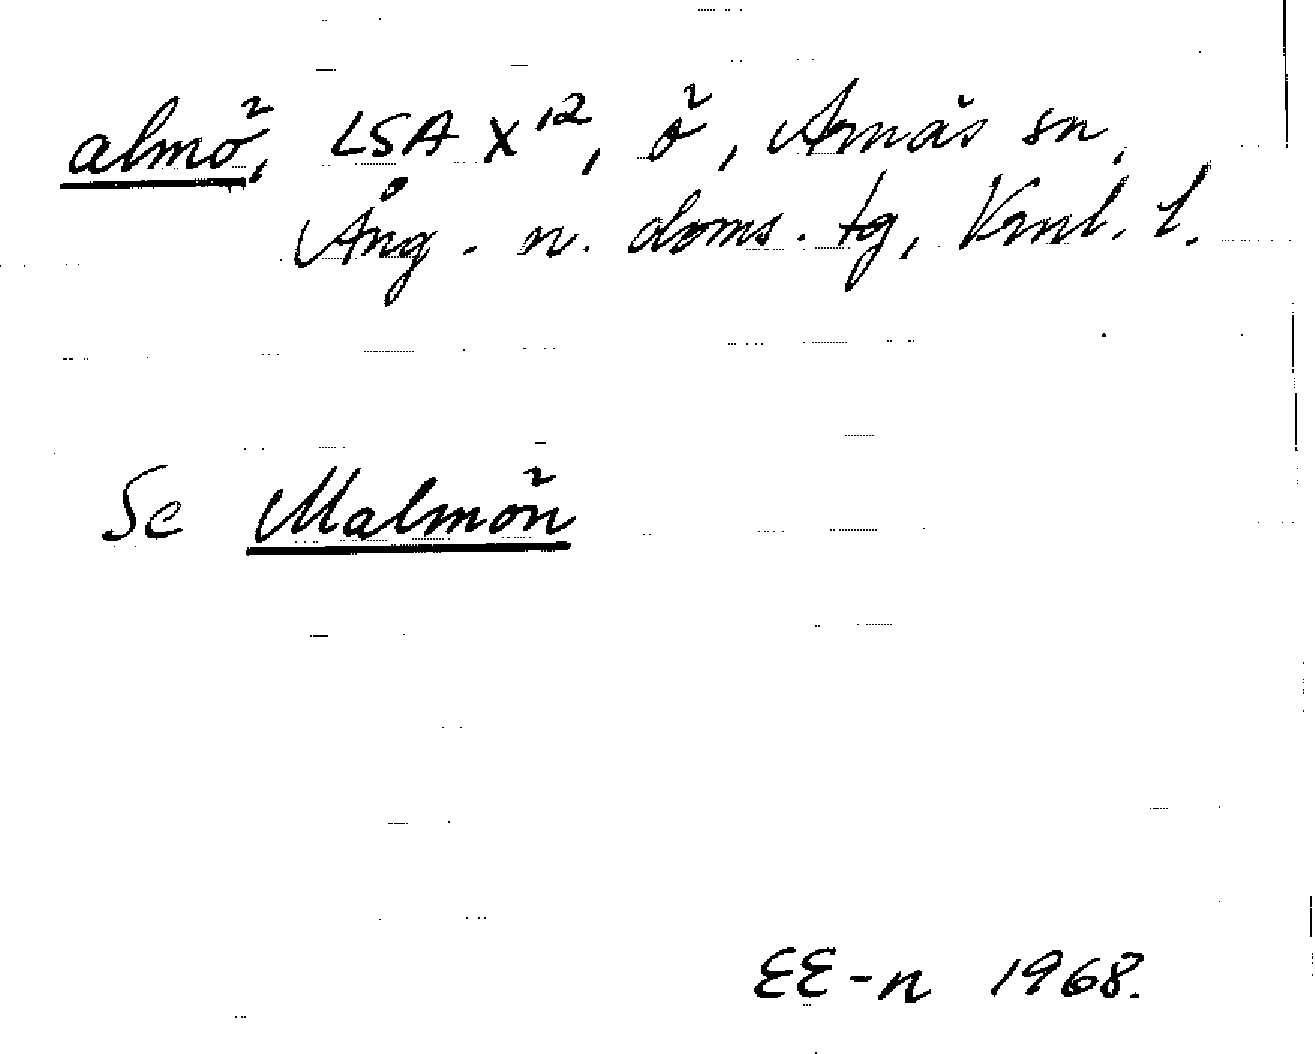 almö, LSA X¹², ö, Arnäs sn,
Ång. n. doms. tg, Vrnl. l.
Se Malmön
EE-n 1968.